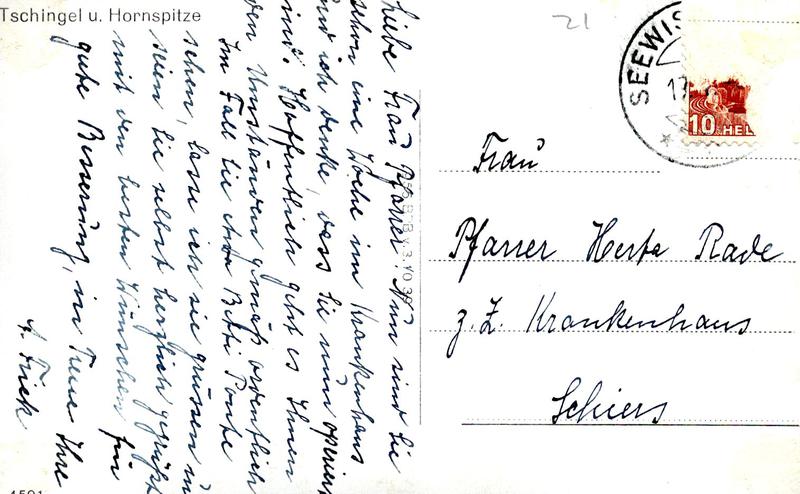 Tschingel u. Hornspitze
Liebe Frau Pfarrer. Nun sind Sie
schon eine Woche im Krankenhaus
und ich denke, dass Sie nun operiert
sind. Hoffentlich geht es Ihnen
den Umständen gemäss ordentlich
Im Fall Sie Betti Ponke
sehen, lasse ich sie grüssen u
seien Sie selbst herzlich gegrüsst
mit den besten Wünschen für
gute Besserung, in Treue Ihre
A. Frick
1591
21
SEEWIS
17
10 HEL
Frau
Pfarrer Herta Rade
z. Z. Krankenhaus
Schiers